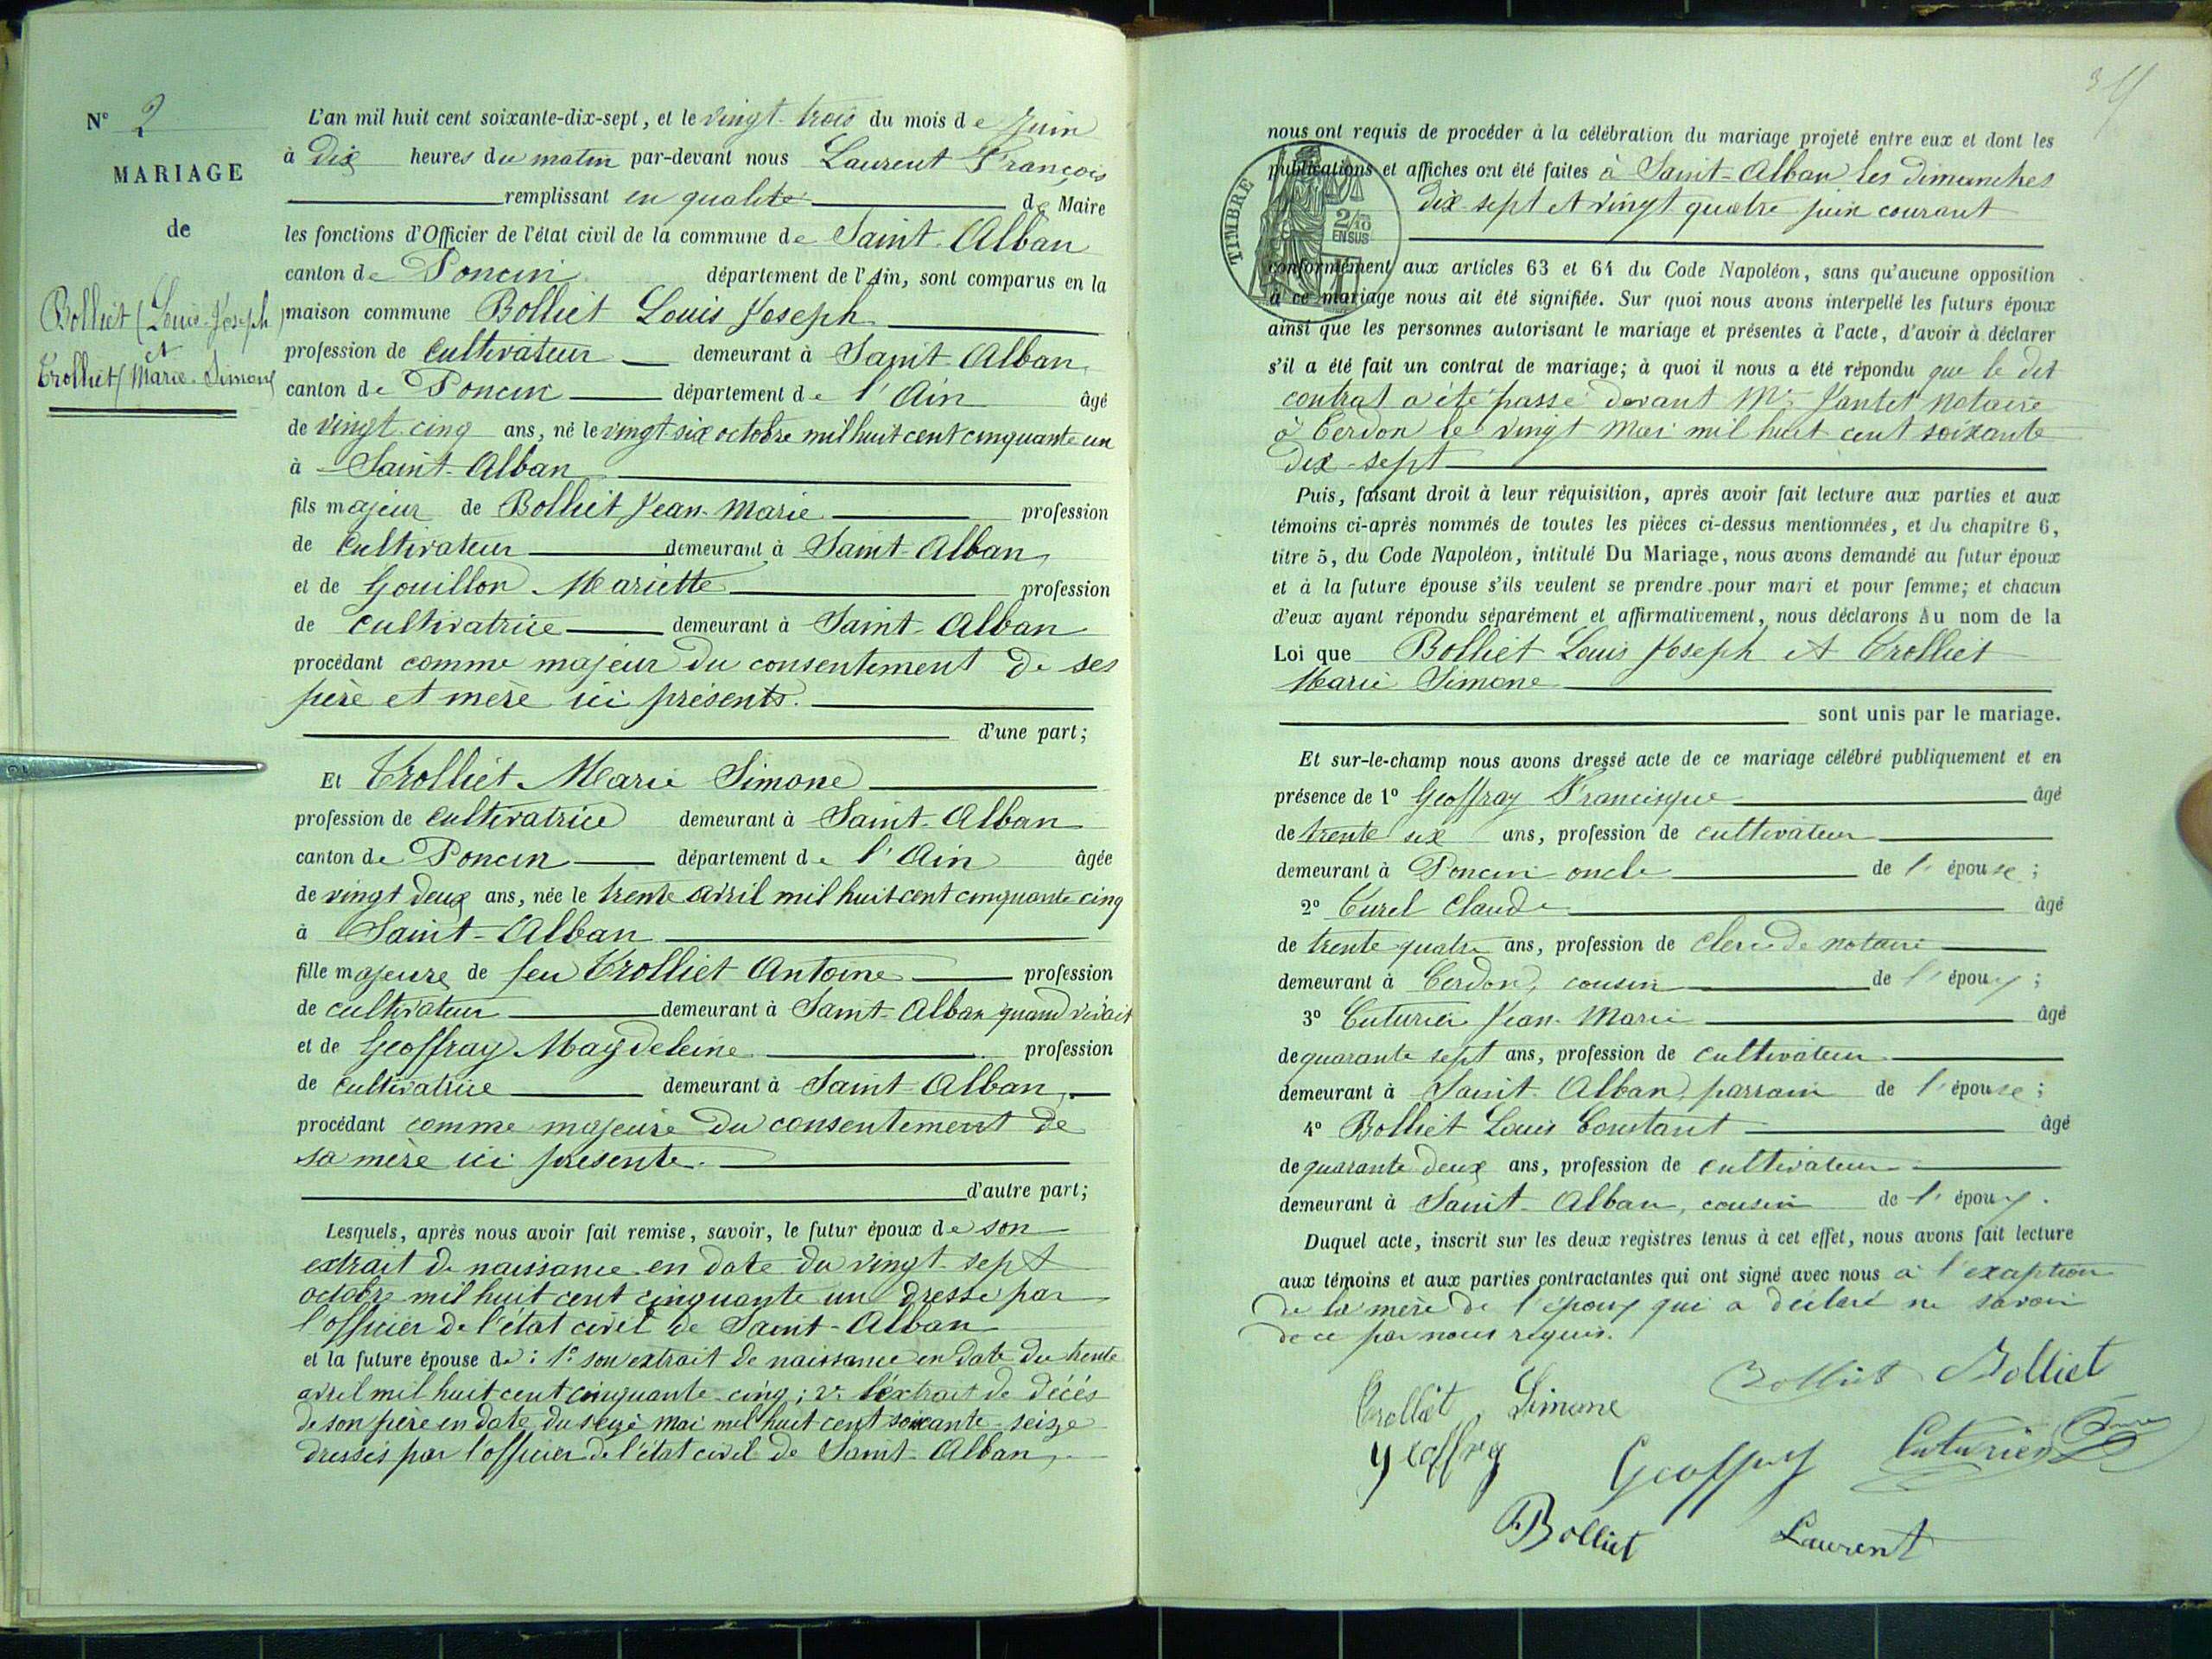 N° 2
MARIAGE
de
Bolliet (Louis-Joseph)
et
Trolliet (Marie-Simone)
L'an mil huit cent soixante-dix-sept, et le vingt-trois du mois de Juin
à dix heures du matin par-devant nous Laurent François
remplissant en qualité de Maire
les fonctions d'Officier de l'état civil de la commune de Saint-Alban
canton de Poncin département de l'Ain, sont comparus en la
maison commune Bolliet Louis Joseph
profession de cultivateur demeurant à Saint-Alban,
canton de Poncin département de l'Ain âgé
de vingt cinq ans, né le vingt-six octobre mil huit cent cinquante un
à Saint-Alban
fils majeur de Bolliet Jean-Marie profession
de cultivateur demeurant à Saint-Alban,
et de Gouillon Mariette profession
de cultivatrice demeurant à Saint-Alban
procédant comme majeur du consentement de ses
père et mère ici présents.
d'une part;
Et Trolliet Marie Simone
profession de cultivatrice demeurant à Saint-Alban
canton de Poncin département de l'Ain âgée
de vingt deux ans, née le trente avril mil huit cent cinquante cinq
à Saint-Alban
fille majeure de feu Trolliet Antoine profession
de cultivateur demeurant à Saint-Alban quand vivait
et de Geoffray Magdeleine profession
de cultivatrice demeurant à Saint-Alban,
procédant comme majeure du consentement de
sa mère ici présente.
d'autre part;
Lesquels, après nous avoir fait remise, savoir, le futur époux de son
extrait de naissance en date du vingt-sept
octobre mil huit cent cinquante un dressé par
l'officier de l'état civil de Saint-Alban
et la future épouse de : 1° son extrait de naissance en date du trente
avril mil huit cent cinquante-cinq ; 2° l'extrait de décès
de son père en date du seize mai mil huit cent soixante-seize
dressés par l'officier de l'état civil de Saint-Alban,
nous ont requis de procéder à la célébration du mariage projeté entre eux et dont les
publications et affiches ont été faites à Saint-Alban les dimanches
dix-sept et vingt quatre juin courant
TIMBRE
2/10
EN SUS
conformément aux articles 63 et 64 du Code Napoléon, sans qu'aucune opposition
à ce mariage nous ait été signifiée. Sur quoi nous avons interpellé les futurs époux
ainsi que les personnes autorisant le mariage et présentes à l'acte, d'avoir à déclarer
s'il a été fait un contrat de mariage; à quoi il nous a été répondu que le dit
contrat a été passé devant Me Jantet notaire
à Cerdon le vingt mai mil huit cent soixante
dix-sept
Puis, faisant droit à leur réquisition, après avoir fait lecture aux parties et aux
témoins ci-après nommés de toutes les pièces ci-dessus mentionnées, et du chapitre 6,
titre 5, du Code Napoléon, intitulé Du Mariage, nous avons demandé au futur époux
et à la future épouse s'ils veulent se prendre pour mari et pour femme; et chacun
d'eux ayant répondu séparément et affirmativement, nous déclarons Au nom de la
Loi que Bolliet Louis Joseph et Trolliet
Marie Simone
sont unis par le mariage.
Et sur-le-champ nous avons dressé acte de ce mariage célébré publiquement et en
présence de 1° Geoffray Francisque âgé
de trente six ans, profession de cultivateur
demeurant à Poncin oncle de l'épouse ;
2° Curel Claude âgé
de trente quatre ans, profession de clerc de notaire
demeurant à Cerdon, cousin de l'époux ;
3° Cuturier Jean-Marie âgé
de quarante sept ans, profession de cultivateur
demeurant à Saint-Alban, parrain de l'épouse ;
4° Bolliet Louis Constant âgé
de quarante deux ans, profession de cultivateur
demeurant à Saint-Alban, cousin de l'époux.
Duquel acte, inscrit sur les deux registres tenus à cet effet, nous avons fait lecture
aux témoins et aux parties contractantes qui ont signé avec nous à l'exception
de la mère de l'époux qui a déclaré ne savoir
de ce par nous requis.
Trolliet Simone Bolliet Bolliet
Geoffray Cuturier
Bolliet Laurent